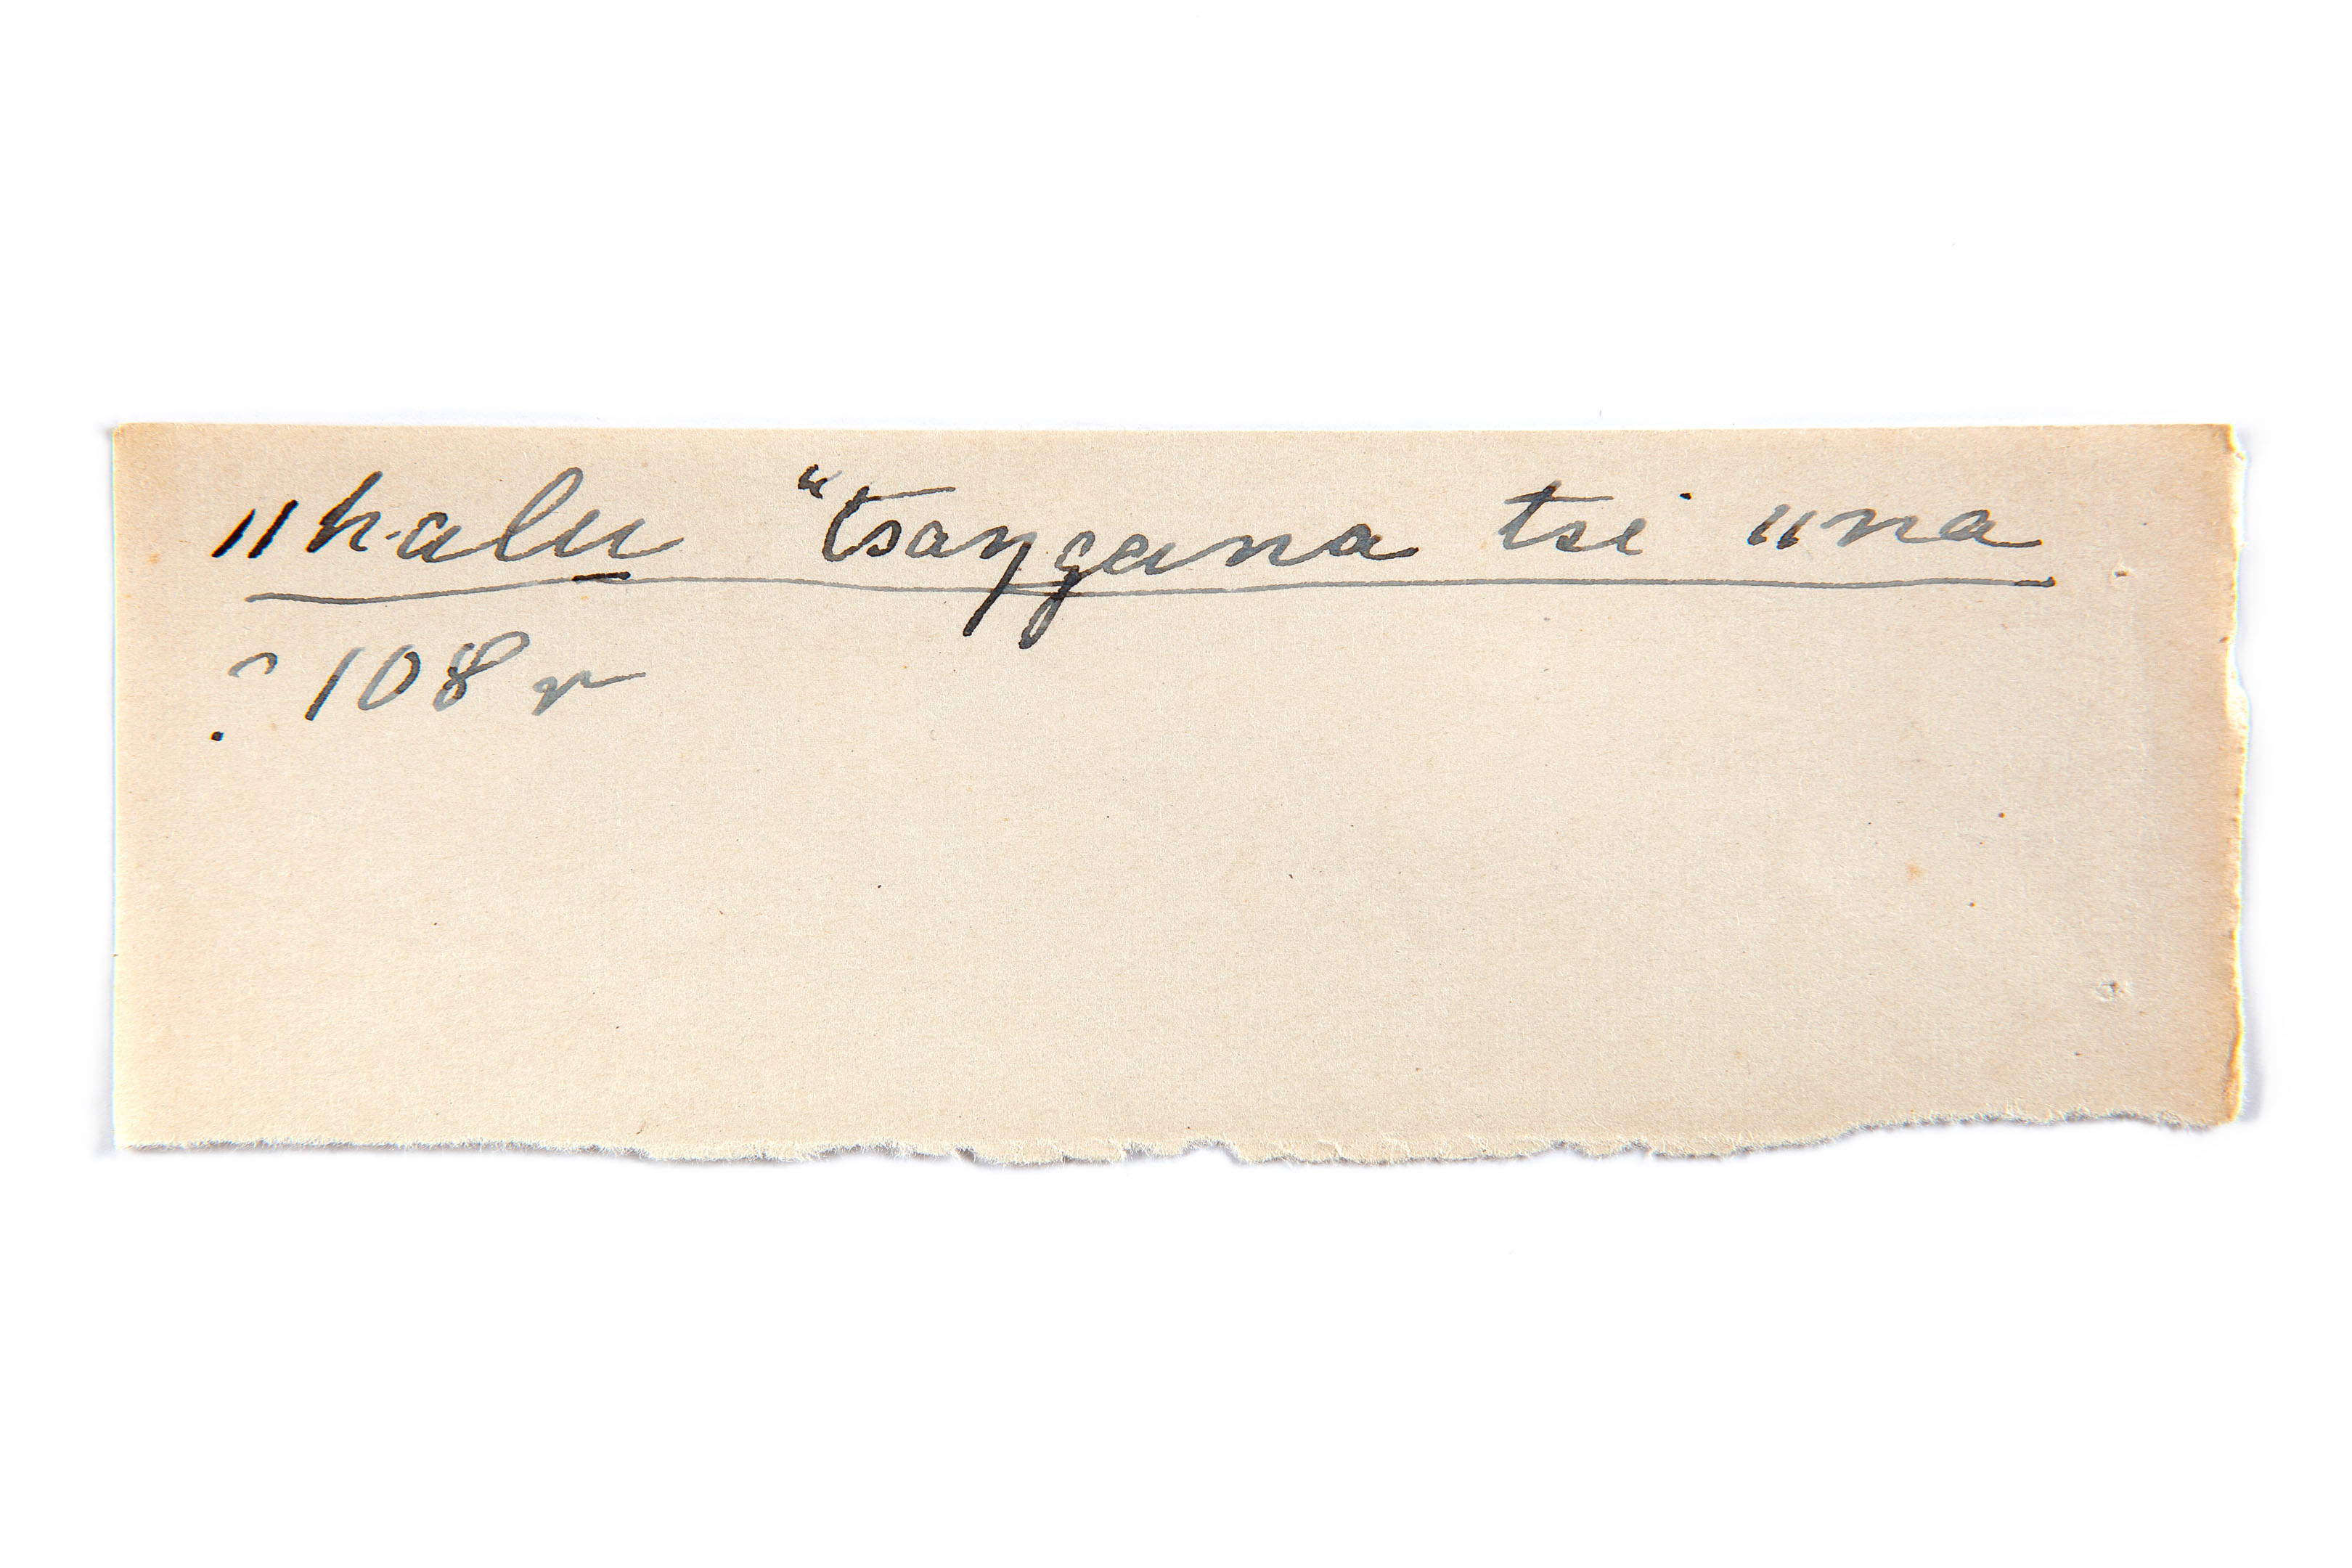 "halu̲ "tsaŋgana tsi "na
? 108 r